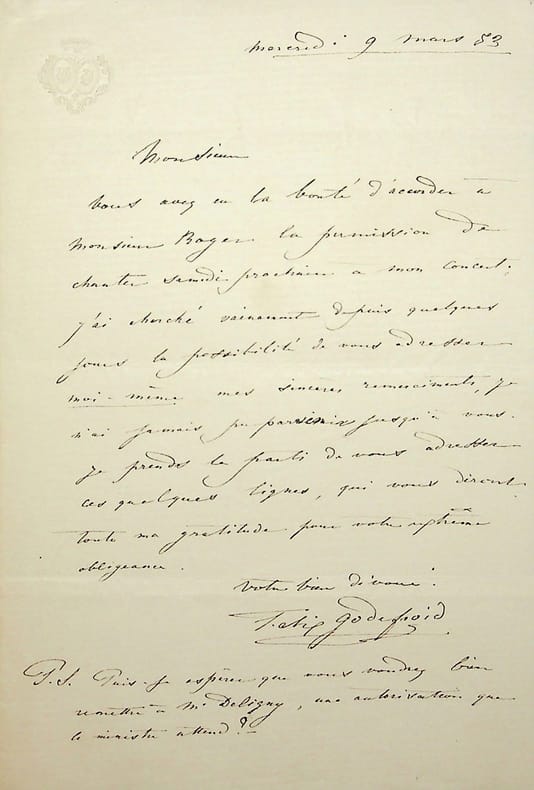 mercredi 9 mars 53
Monsieur
Vous avez eu la bonté d'accorder à
Monsieur Roger la permission de
chanter samedi prochain à mon concert;
j'ai cherché vainement depuis quelques
jours la possibilité de vous adresser
moi-même mes sincères remerciements, je
n'ai jamais pu parvenir jusqu'à vous.
Je prends le parti de vous adresser
ces quelques lignes, qui vous diront
toute ma gratitude pour votre extrême
obligeance.
Votre bien dévoué.
Félix Godefroid
P.S. Puis-je espérer que vous voudrez bien
remettre à Mr Deligny, une autorisation que
le ministre attend?